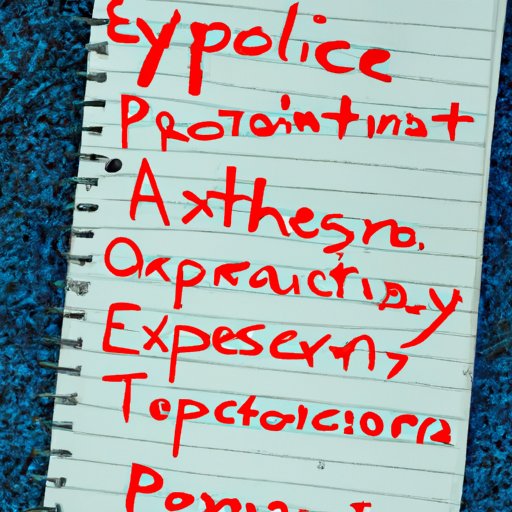 Eypolice
Prozaintinst
Axthesrno.
Oxpraactiny
Expeserny
Tepctoaciorra